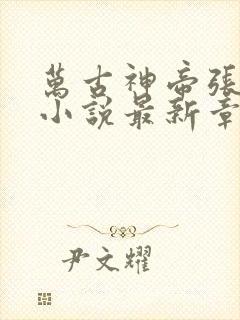 萬古神帝張
小說最新章
尹文耀